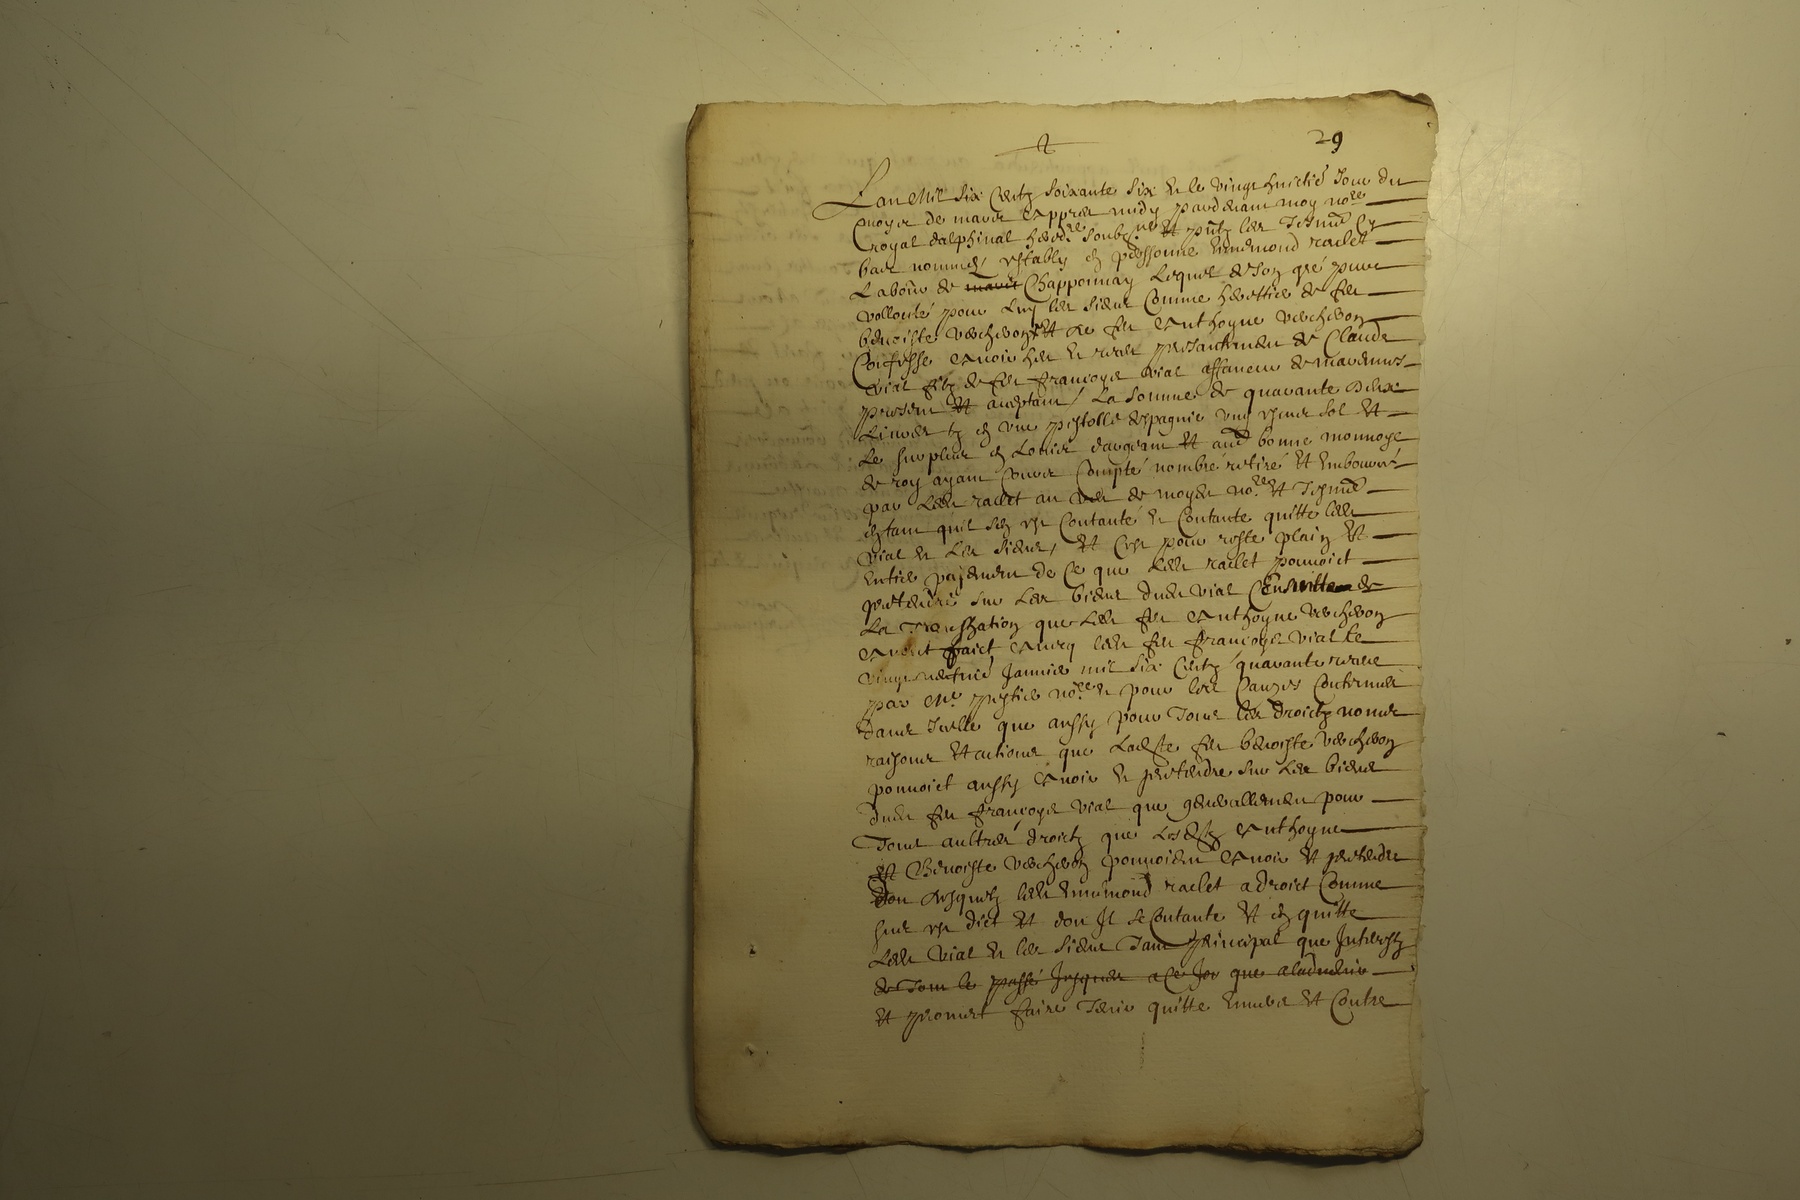 29
Lan Mil six Centz soixante six et le vingt huictie Jour du
moyes de mars appres midy pardevant moy nore
royal dalphinal hered.re soub.ne et putz les Tesms cy
bas nommes estably en perssonne Ennemond raclet
Labour de mars Chapponnay Lequel de son gré pure
vollonté pour Luy les siens Comme herettier de feu
benoiste vercheron et de feu Anthoyne vercheron
Confesse Avoir heu et receu presantement de Claude
vial filz de feu françoys vial affaneur de marennes
present et aceptant La somme de quarante deux
Livres tz en une pistolle despagnie ung escus sol et
le surplus en Louis dargeant et aud bonne monnoye
de roy ayant Cours Compté nombré retiré et Emboursé
par led raclet au veu de moyd no.re et Tesms
entant quil sen est Contanté et Contante quitte led
vial et les siens, et Cest pour reste plain et
Entier payement de Ce que led raclet pouvoict
pretendre sur les biens dud vial Ensuitte de
La Transsation que led feu Anthoyne vercheron
Avoict faict Avecq led feu françoys vial le
vingt Janvier mil six Centz quarante
par Me no.re et pour les Causes Contenues
dans Icelle que aussy pour Tous les droictz noms
raisons et actions que Ladste feu benoiste vercheron
pouvoict aussy Avoir et pretendre sur Les biens
dud feu françoys vial que generallement pour
Tous aultres droictz que Lesdtz Anthoyne
et Benoiste vercheron pouvoient Avoir et pretendre
don desquelz led Ennemond raclet a droict Comme
sus est dict et don Il se Contante et en quitte
Led vial et les siens Tant principal que Interestz
de Tout le passé Jusques a Ce Jor que aladvenir
et promet faire Tenir quitte Envers et Contre